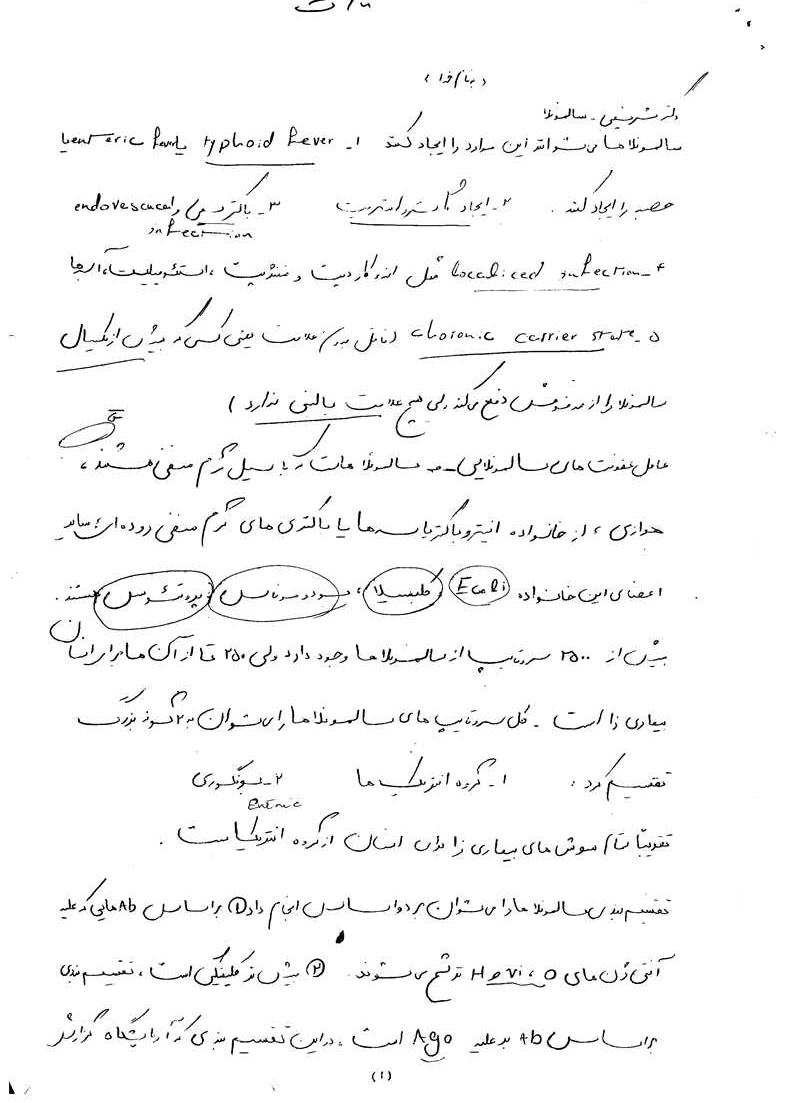 (بنام خدا)
دکتر شریفی - سالمونلا
سالمونلاها می‌توانند این موارد را ایجاد کنند ۱- typhoid fever یا enteric
حصبه را ایجاد کنند . ۲- ایجاد گاستروانتریت ۳- باکتریمی و endovescucal
infection
۴- localiced infection مثل اندوکاردیت و مننژیت ، استئومیلیت، آبسه‌ها
۵- choronic carrier state (ناقل بدون علامت یعنی کسی که بیش از یکسال
سالمونلا را از مدفوعش دفع می‌کند ولی هیچ علامت بالینی ندارد )
عامل عفونت های سالمونلایی → سالمونلا هاست که باسیل گرم منفی هستند ،
هوازی ، از خانواده انتروباکتریاسه‌ها یا باکتری های گرم منفی روده‌ای، سایر
اعضای این خانواده Ecoli ، کلبسیلا ، سودوموناس ، پروتئوس هستند .
بیش از ۲۵۰۰ سروتایپ از سالمونلاها وجود دارد ولی ۲۵۰ تا از آن ها برای انسان
بیماری زا است . کل سروتایپ های سالمونلاها را می‌توان به ۲ گروه بزرگ
تقسیم کرد : ۱- گروه انتریک ها ۲- بونگوری
Enteric
تقریباً تمام سوش های بیماری زا برای انسان از گروه انتریکاست .
تقسیم بندی سالمونلاها را می‌توان بر دو اساس انجام داد ① براساس Ab هایی که علیه
آنتی ژن های O ، Vi و H ترشح می‌شوند . ② بیشتر کلینیکی است ، تقسیم بندی
براساس Ab بر علیه Ago است ، در این تقسیم بندی که آزمایشگاه گزارش
(۱)